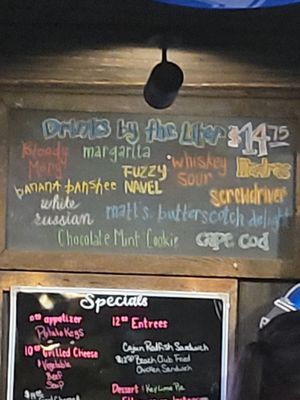 Drinks by the Liter $14.75
Bloody Mary margarita whiskey sour Madras
banana banshee FUZZY NAVEL screwdriver
white russian matt's butterscotch delight
Chocolate Mint Cookie cape cod
Specials
appetizer
Potato Kegs
12.00 Entrees
10.00 Grilled Cheese
Vegetable
Beef
Soup
Cajun Redfish Sandwich
Beach Club Fried
Chicken Sandwich
Dessert: Key Lime Pie